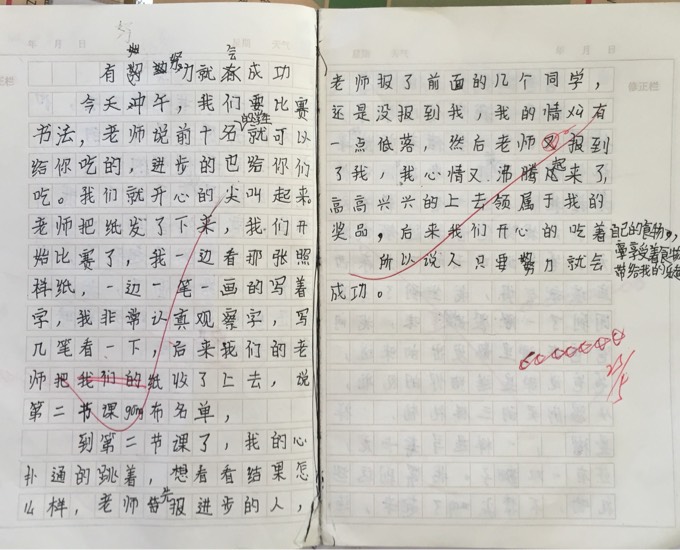 年 月 日 星期 天气
有努力就会成功
今天中午，我们要比赛
书法，老师说前十名的学生就可以
给你吃的，进步的也给你们
吃。我们就开心的尖叫起来。
老师把纸发了下来，我们开
始比赛了，我一边看那张照
样纸，一边一笔一画的写着
字，我非常认真观察字，写
几笔看一下，后来我们的老
师把我们的纸收了上去，说
第二节课gong布名单，
到第二节课了，我的心
扑通的跳着，想看看结果怎
么样，老师先报进步的人，
年 月 日 星期 天气
老师报了前面的几个同学，
还是没报到我，我的情么有
一点低落，然后老师又报到
了我，我心情又沸腾起来了，
高高兴兴的上去领属于我的
奖品，后来我们开心的吃着自己的食物，
享受着食物
带给我的
所以说人只要努力就会
成功。